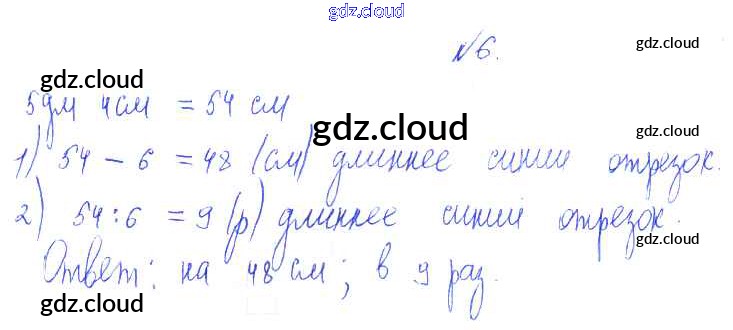 gdz.cloud
№6.
gdz.cloud
gdz.cloud
5дм 4см = 54 см
gdz.cloud
gdz.cloud
1) 54 - 6 = 48 (см) длиннее синий отрезок.
2) 54:6 = 9 (р) длиннее синий отрезок.
gdz.cloud
Ответ: на 48 см; в 9 раз.
gdz.cloud
gdz.cloud